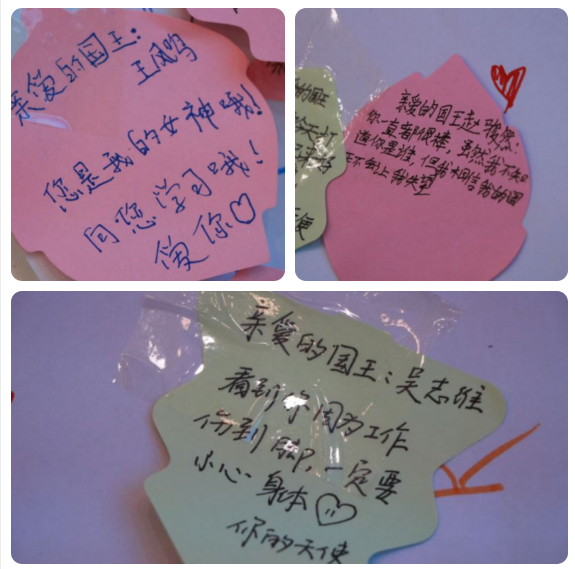 亲爱的国王:
王凤鸣
您是我的女神哦!
向您学习哦!
爱你♡
亲爱的国王赵
你一直都很棒,虽然我不知
道你是谁,但我相信我的国
王不会让我失望
亲爱的国王:吴志雄
看到你因为工作
伤到脚,一定要
小心身体
你的天使